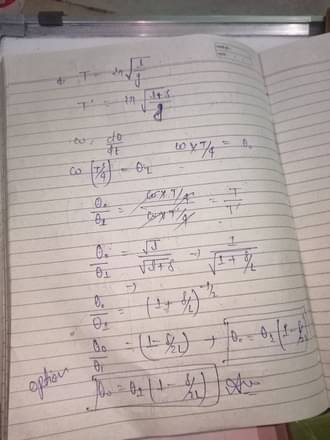 T = 2π√(l/g)
T' = 2π√((l+δ)/g)
ω = dθ/dt ω × T/4 = θ₀
ω (T'/4) = θ₁
θ₀/θ₁ = (ω × T/4)/(ω × T'/4) = T/T'
θ₀/θ₁ = √l/√(l+δ) → 1/√(1+δ/l)
→
θ₀/θ₁ = (1+δ/l)^(-1/2)
θ₀/θ₁ = (1-δ/2l) → θ₀ = θ₁(1-δ/2l)
option θ₀ = θ₁(1-δ/2l) Ans